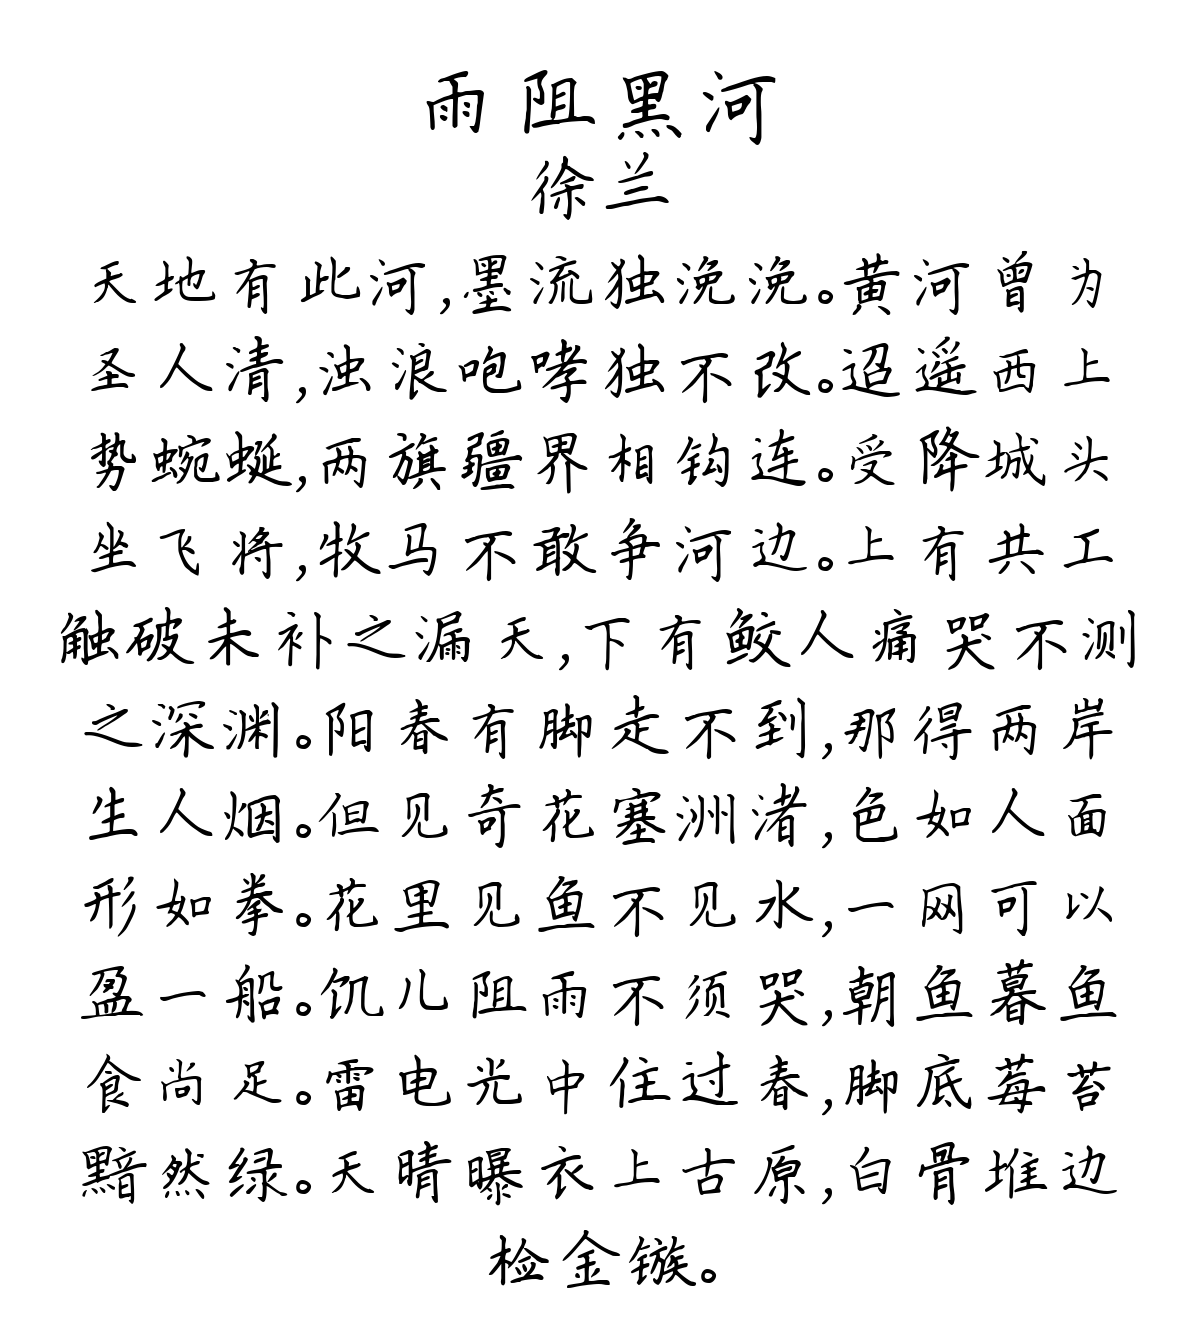 雨阻黑河
徐兰
天地有此河,墨流独浼浼。黄河曾为
圣人清,浊浪咆哮独不改。迢遥西上
势蜿蜒,两旗疆界相钩连。受降城头
坐飞将,牧马不敢争河边。上有共工
触破未补之漏天,下有鲛人痛哭不测
之深渊。阳春有脚走不到,那得两岸
生人烟。但见奇花塞洲渚,色如人面
形如拳。花里见鱼不见水,一网可以
盈一船。饥儿阻雨不须哭,朝鱼暮鱼
食尚足。雷电光中住过春,脚底莓苔
黯然绿。天晴曝衣上古原,白骨堆边
检金镞。